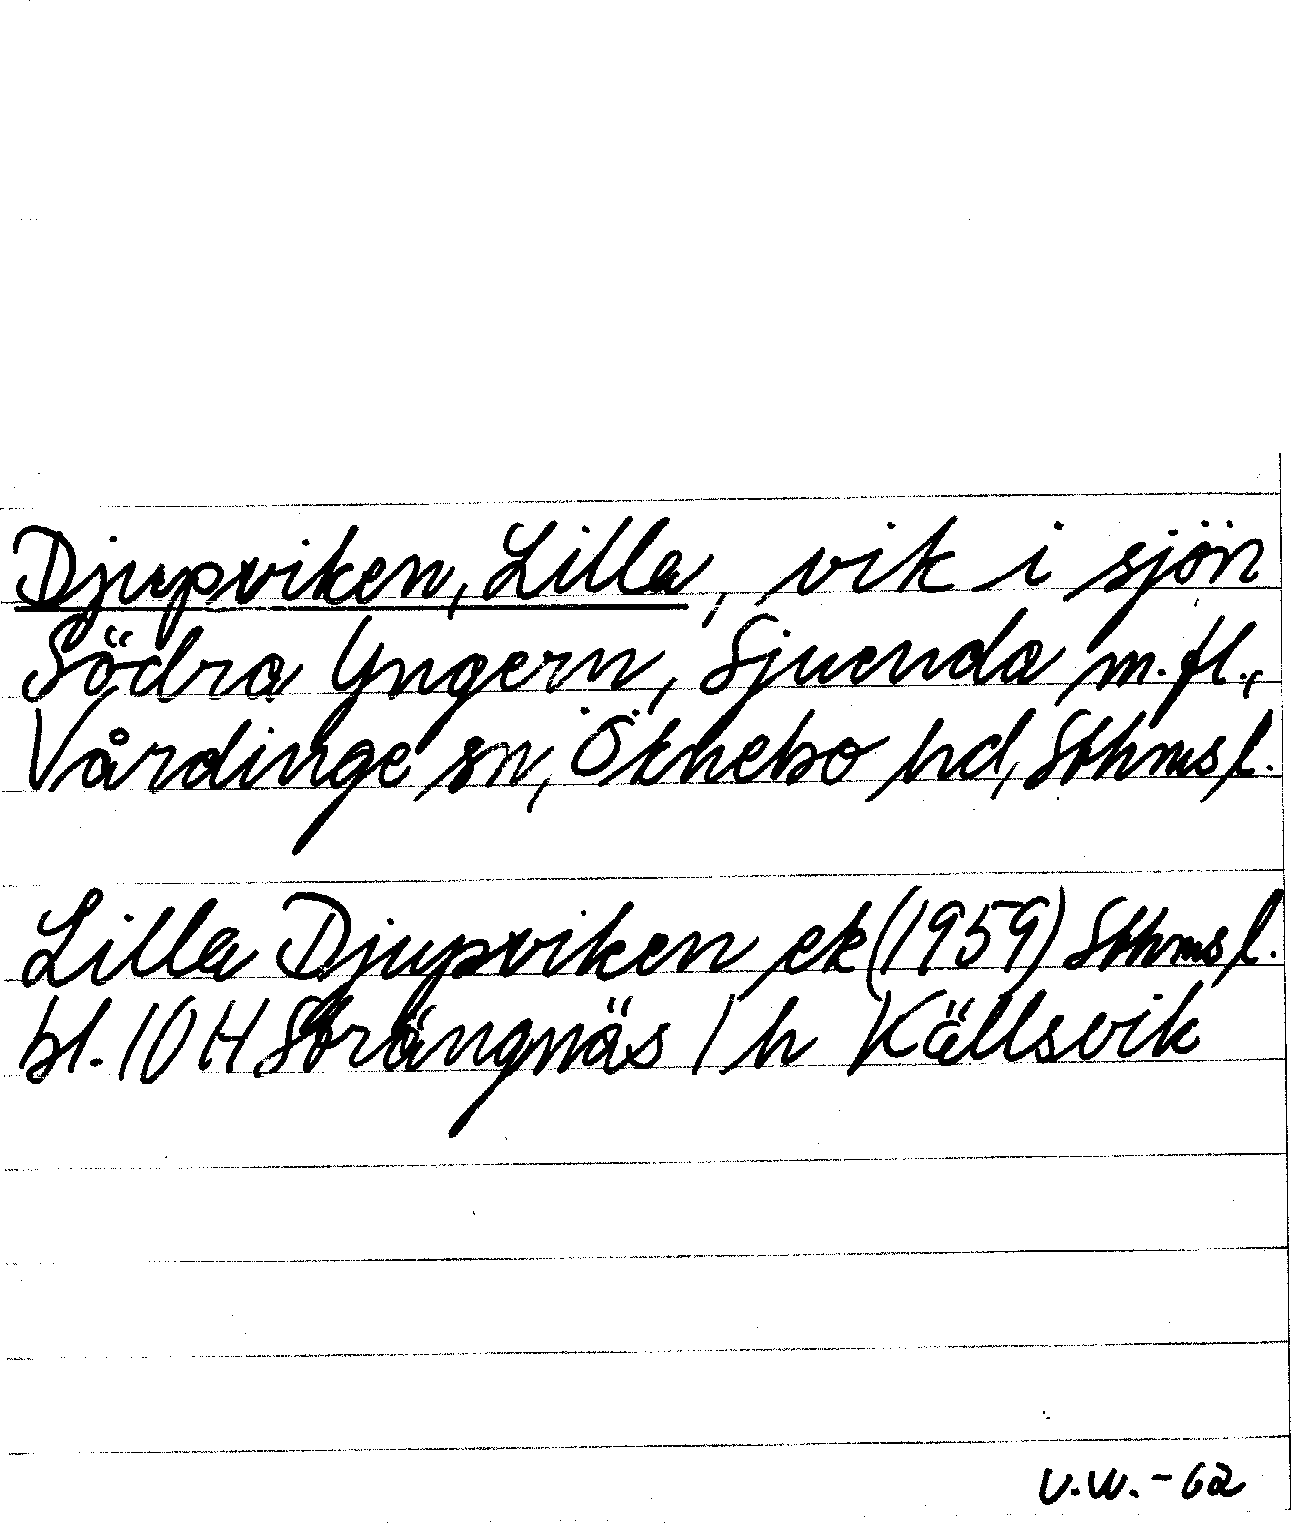 Djupviken, Lilla, vik i sjön
Södra Yngern, Sjuenda m.fl.,
Vårdinge sn, Öknebo hd, Sthms l.
Lilla Djupviken ek (1959) Sthms l.
bl. 10 H Strängnäs 1 h Källsvik
V.W. - 62